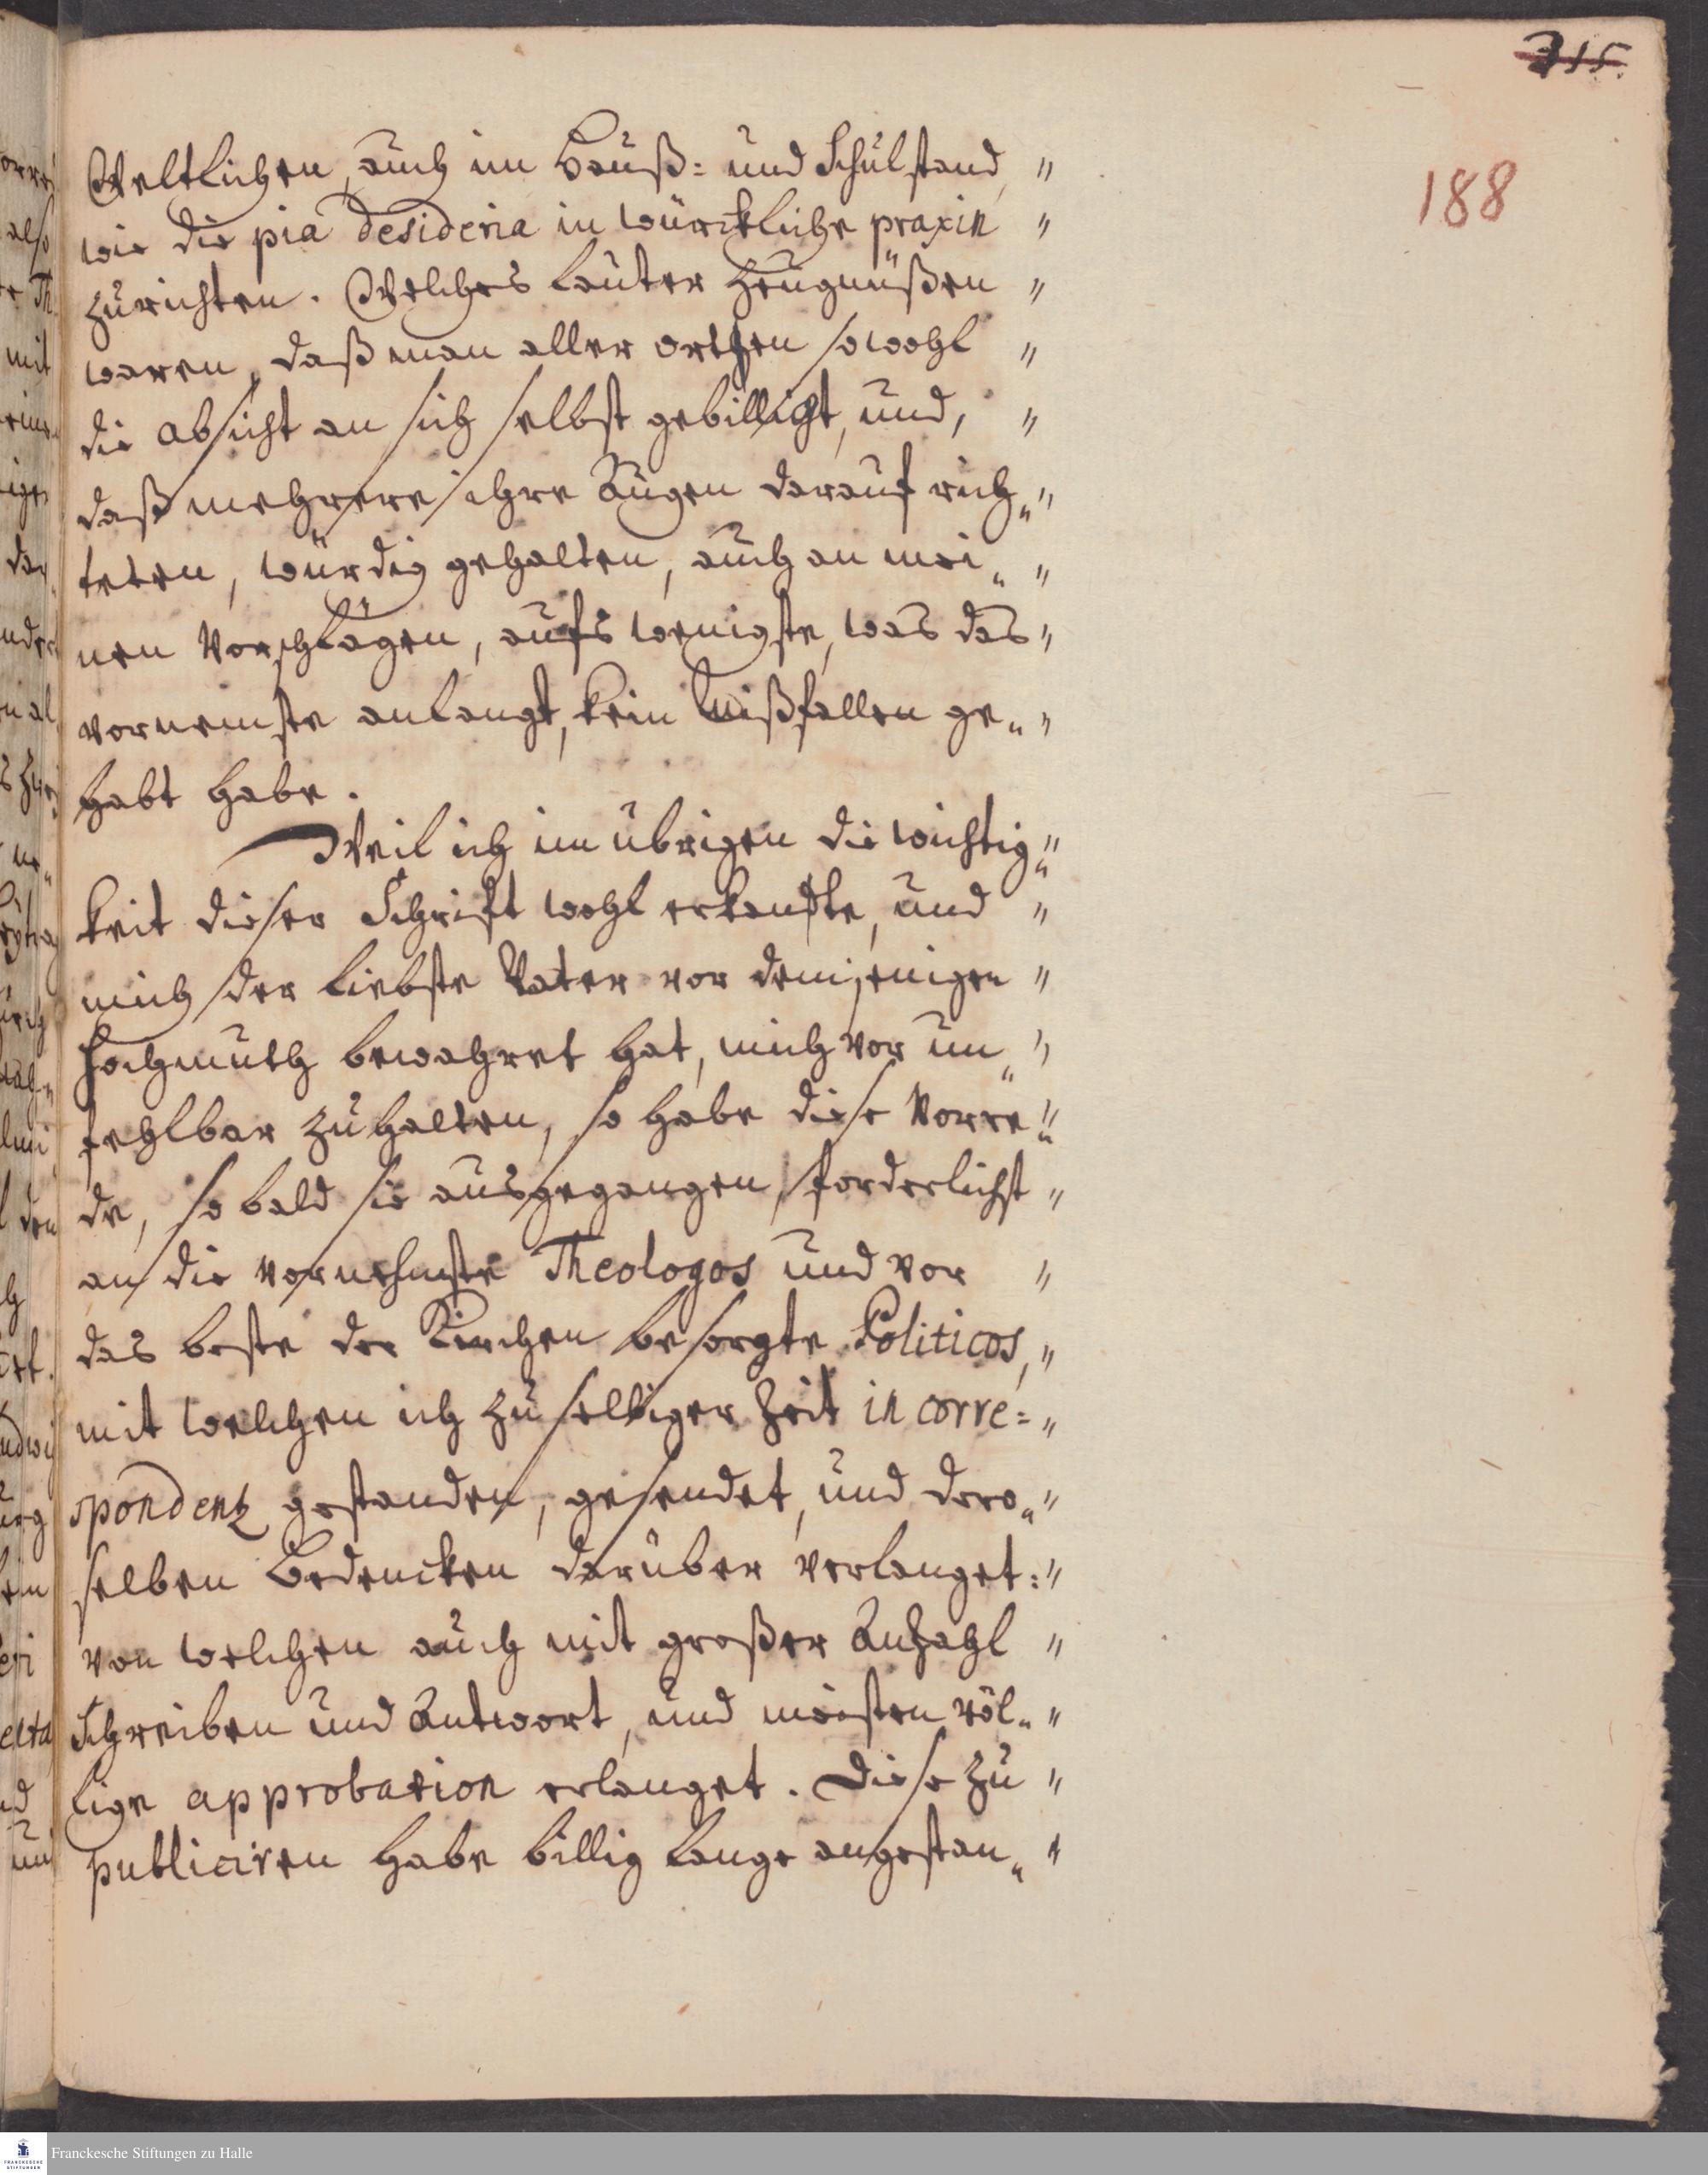 315.
188
Weltlichen, auch im Hauß- und Schulstand, "
wie die pia desideria in würckliche praxin "
zurichten. Welches lauter Zeugnüßen "
waren, daß man aller orthen sowohl "
die absicht an sich selbst gebilligt, und, "
daß mehrere ihre Augen darauf rich„ "
teten, würdig gehalten, auch an mei„ "
nen Vorschlägen, aufs wenigste, was das "
vornemste anlangt, kein Mißfallen ge„ "
habt habe.
Weil ich im übrigen die wichtig„ "
keit dieser Schrift wohl erkandte, und "
mich der liebste Vater vor demjenigen "
Hochmuth bewahret hat, mich vor un„ "
fehlbar zuhalten, so habe diese Vorre„ "
de, so bald sie ausgegangen, forderlichst "
an die vornehmste Theologos und vor "
das beste der Kirchen besorgte Politicos, "
mit welchen ich zu selbiger Zeit in corre= "
spondentz gestanden, gesendet, und dero„ "
selben Bedencken darüber verlanget: "
von welchen auch mit großer Anzahl "
Schreiben und Antwort, und meisten völ„ "
lige approbation erlanget. Diese zu "
publiciren habe billig lange angestan„ "
Franckesche Stiftungen zu Halle